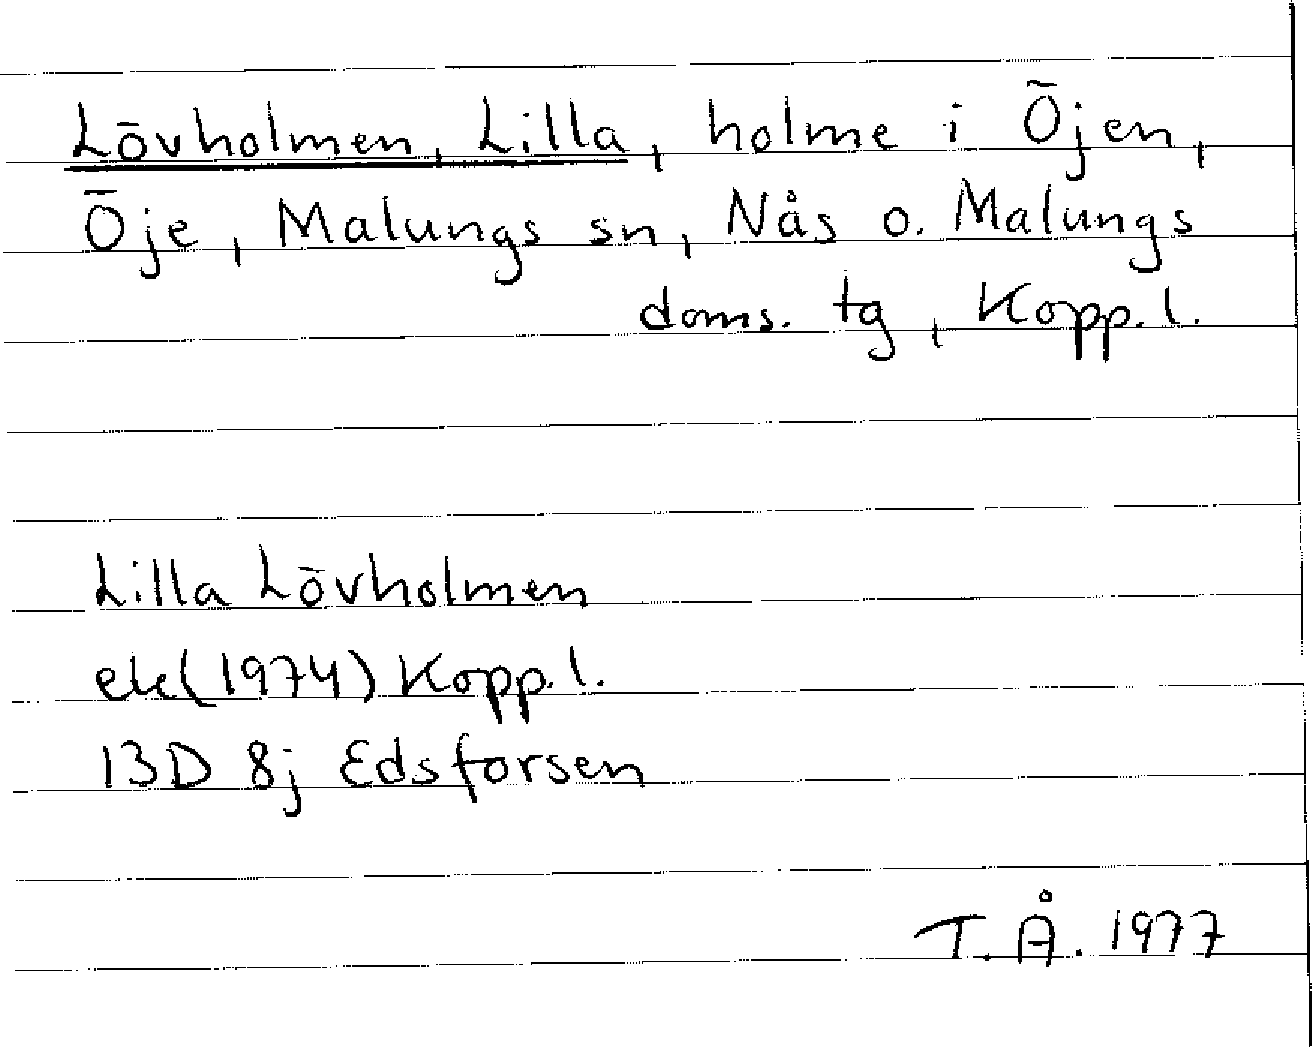 Lövholmen, Lilla, holme i Öjen,
Öje, Malungs sn, Nås o. Malungs
doms. tg, Kopp. l.
Lilla Lövholmen
ek(1974) Kopp. l.
13D 8j Edsforsen
T. Å. 1977